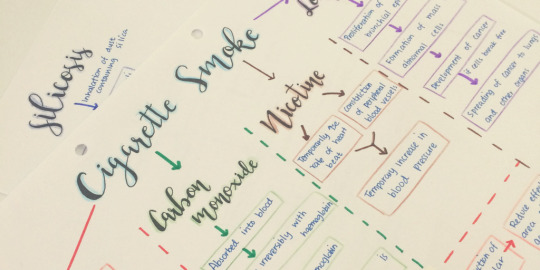 Silicosis
Inhalation of dust
containing silica
Cigarette Smoke
Nicotine
Constriction
of peripheral
blood vessels
Temporarily
rate of heart
beat
Temporary increase in
blood pressure
Carbon
monoxide
Absorbed into blood
irreversibly with
haemoglobin
is
Proliferation of
bronchial
Formation of mass
abnormal cells
Development of cancer
if cells break free
Spreading of cancer to lungs
and other organs
Reduce
area
of